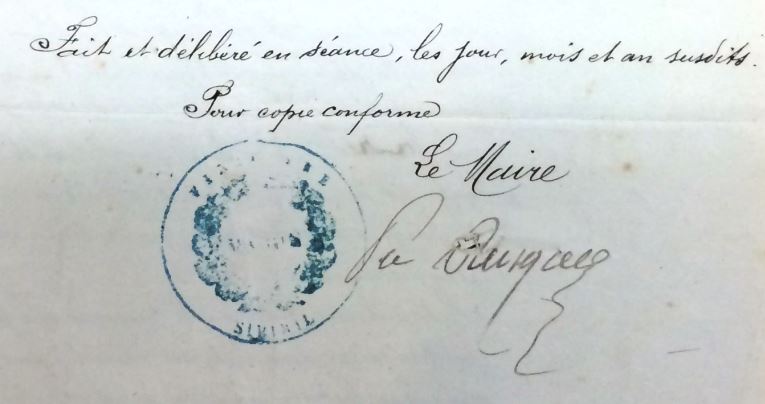 Fait et délibéré en séance, les jour, mois et an susdits.
Pour copie conforme
Le Maire